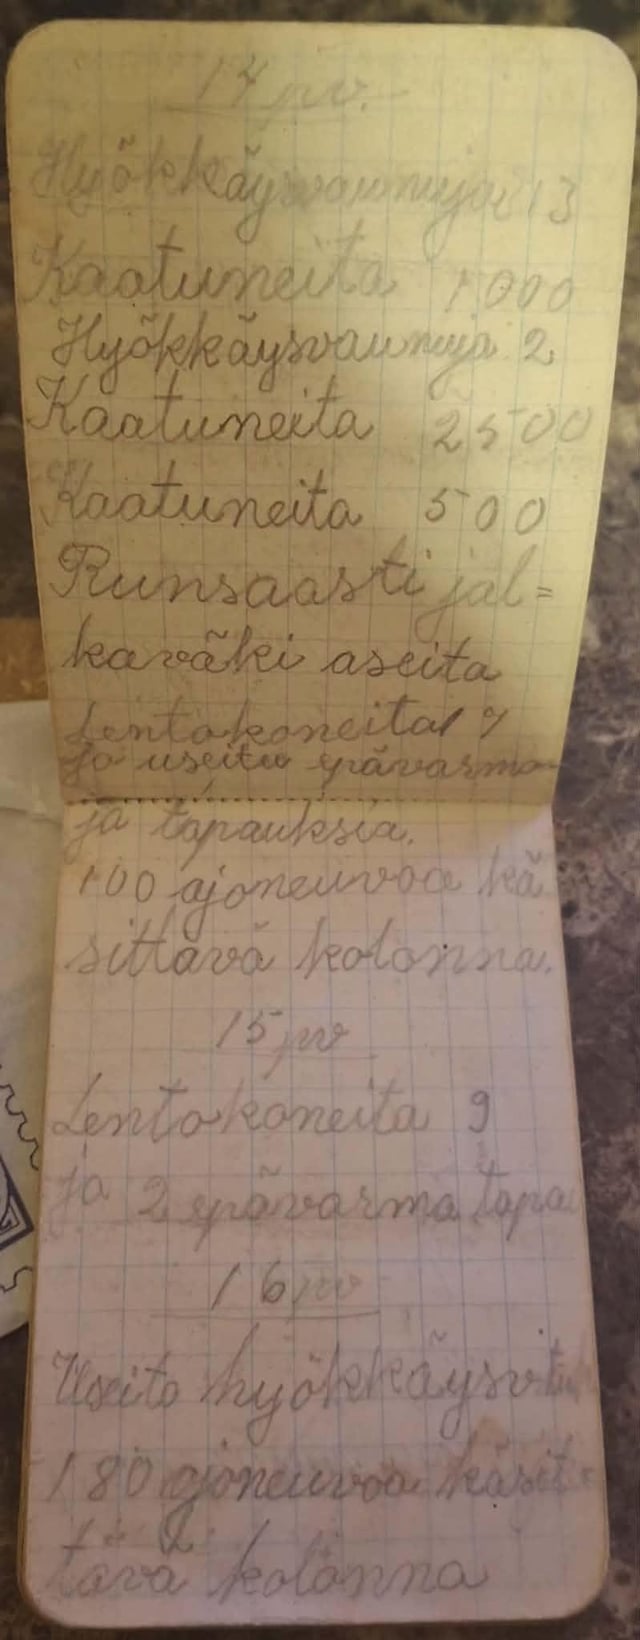 14 pv.
Hyökkäysvaunuja 13
Kaatuneita 1000
Hyökkäysvaunuja 2
Kaatuneita 2500
Kaatuneita 500
Runsaasti jal=
kaväki aseita
Lentokoneita
ja useita epävarmo
ja tapauksia.
100 ajoneuvoa kä
sittävä kolonna.
15 pv
Lentokoneita 9
ja 2 epävarma tapau
16 pv
Useita hyökkäysv
180 ajoneuvoa käsit
tävä kolonna